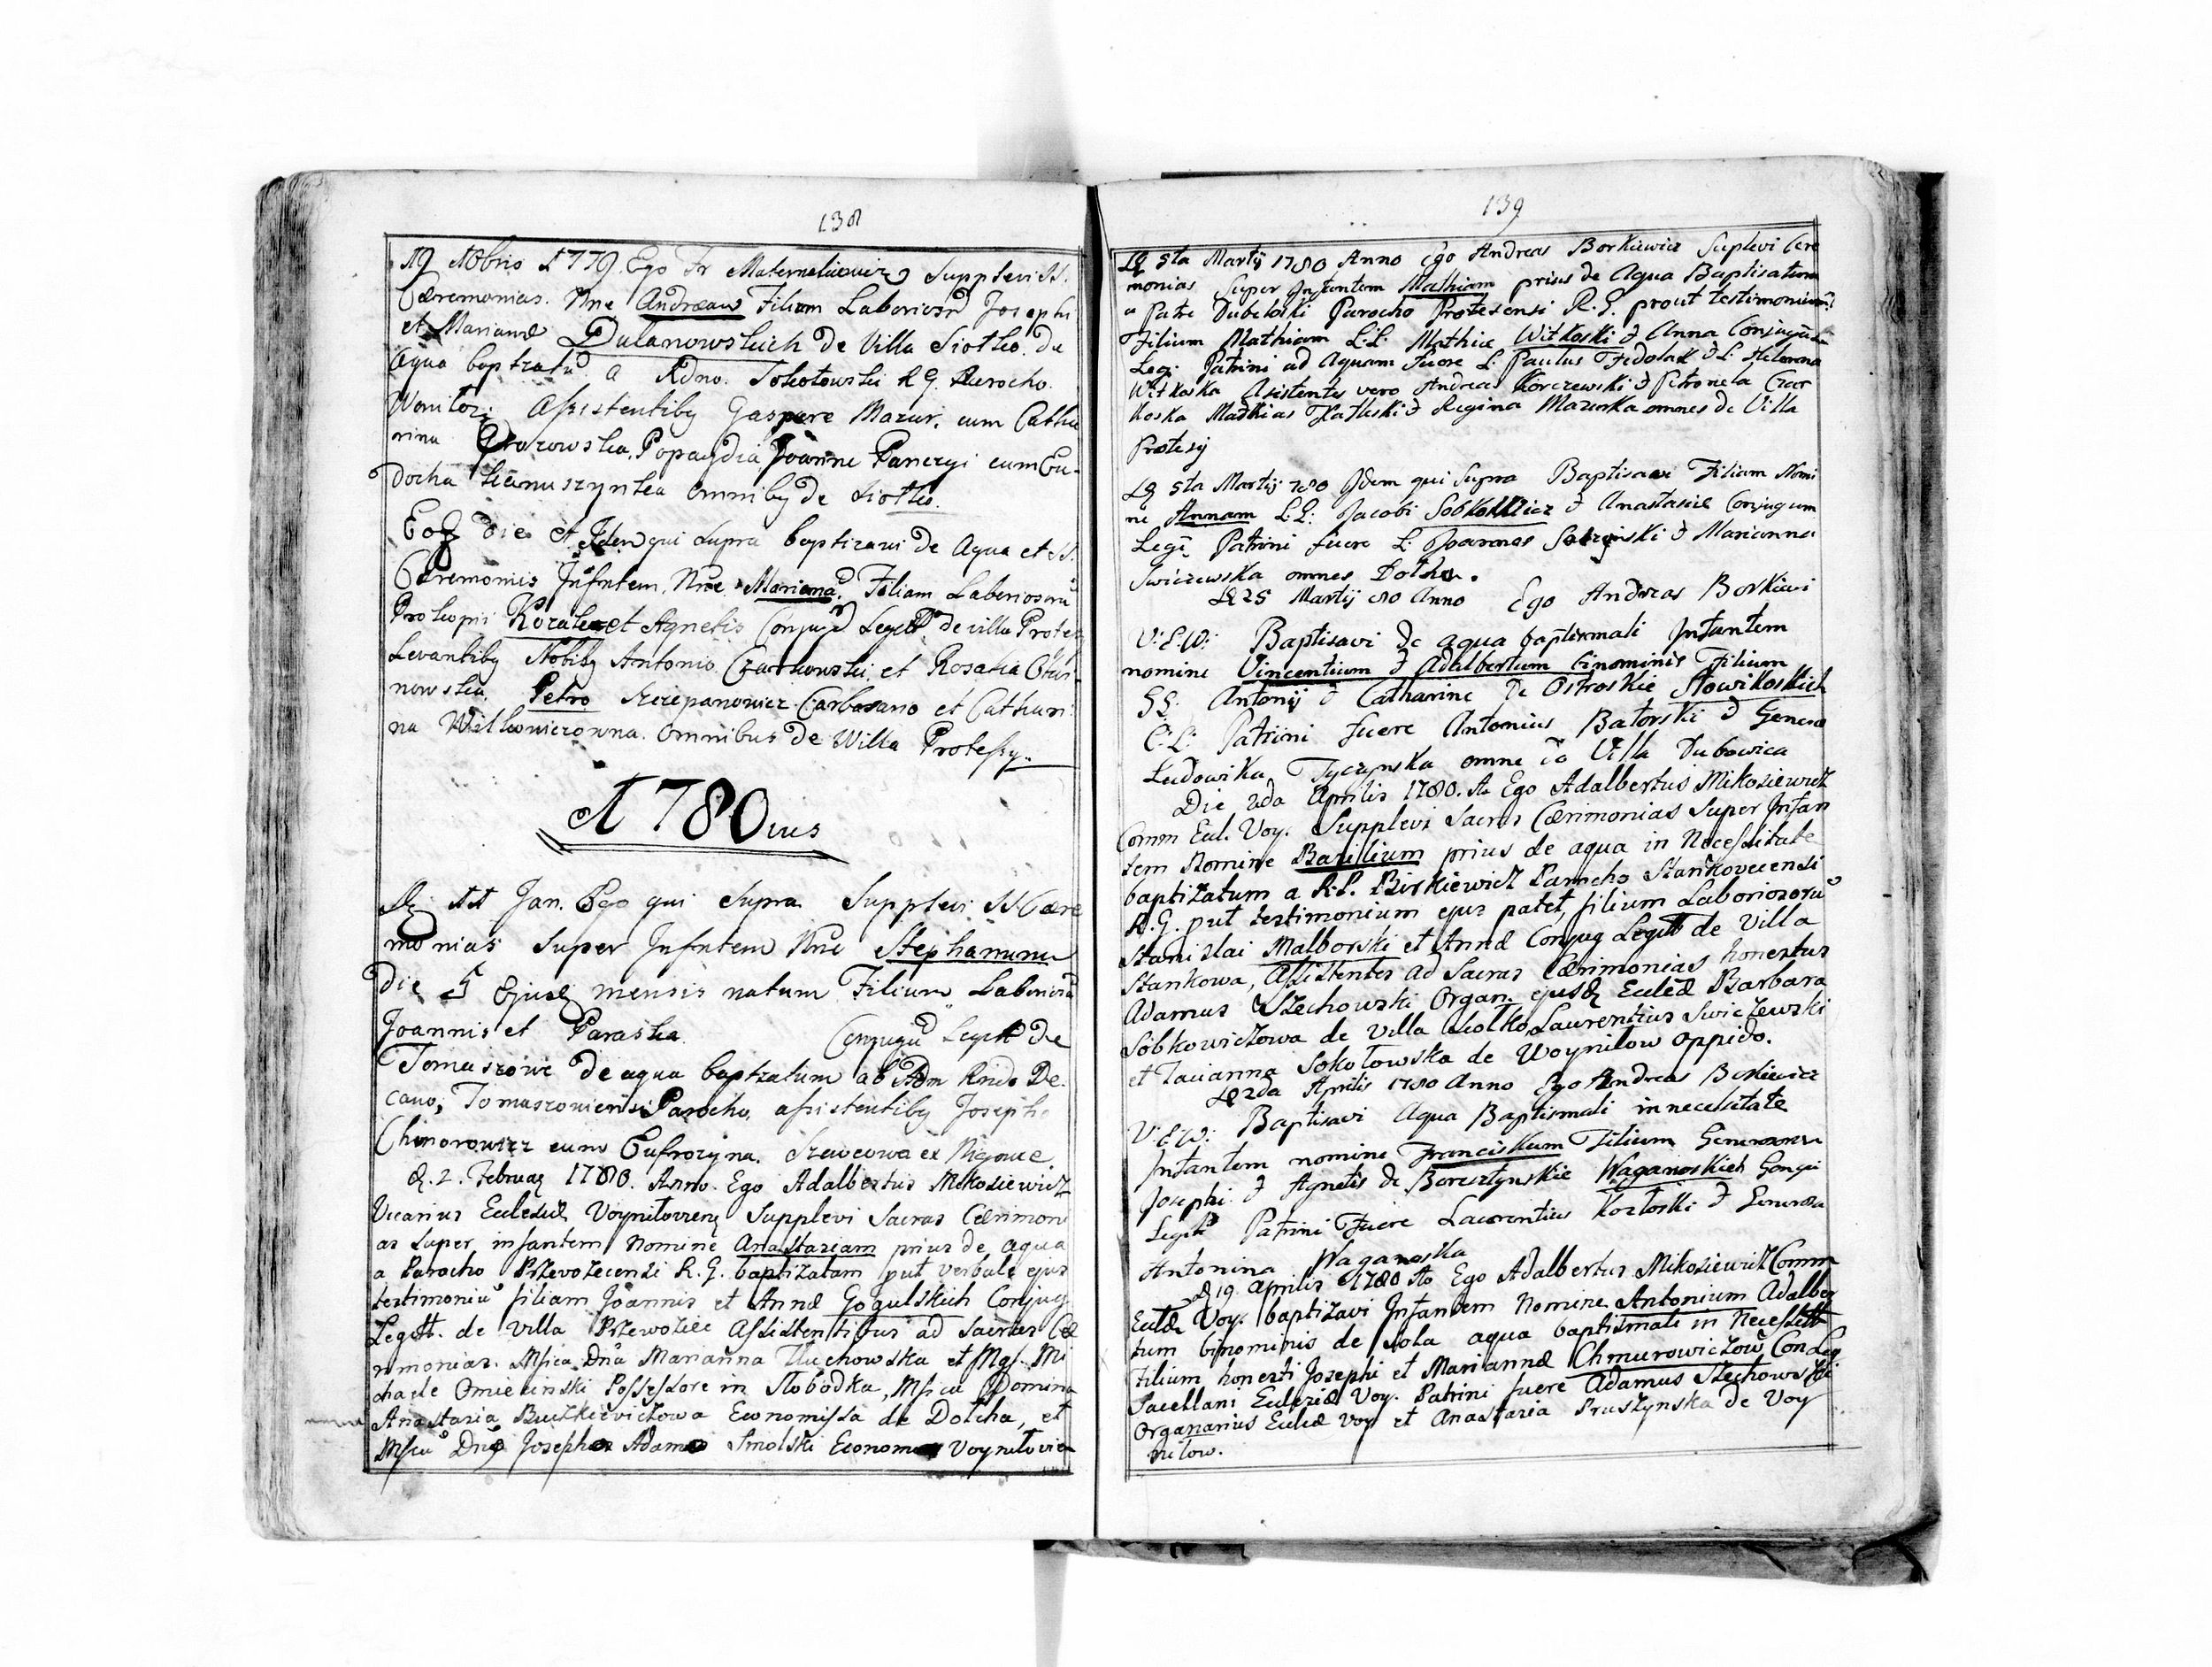 138
19 Nbris 1779. Ego Fr Maternakiewicz Supplevi SS.
Cæremonias. Nne Andræam Filium Laboriosor Josephi
et Mariannæ Dulanowskich de Villa Siotko. de
Aqua baptzatu a Rdno. Sokołowski R G. Parocho.
Woniłoz: Assistentiby Gaspare Mazur. cum Catha
rina Popaydia Joanne Paneryi cum Eu-
docha omniby de Siotko.
Eoq die et Idem qui Supra baptizavi de Aqua et SS.
Cæremoniis Infntem. Nne. Marianā. Filiam Laboriosorū
Prokopii et Agnetis Conjug Legit de villa Protes
Levantiby Nobiby Antonio. Czarkowski. et Rosalia
nowska. Petro Szczepanowicz et Cathari
na omnibus de Willa Protessy.
1780us
11 Jan. Ego qui Supra Supplevi SS Cære
monias Super Infntem Nne Stephanum
die 5 Ejusq mensis natum Filium Laborios
Joannis et Paraska Conjugū Legit de
Tomaszowie de aqua baptzatum ab Adm Rndo De-
cano, Tomaszowiensi Parocho, assistentiby Josepho
Chmorowicz cum Eufrozyna. Szewcowa ex Niegowce.
D. 2. Februaq 1780. Anno. Ego Adalbertus Mikosiewicz
Vicarius Ecclesiæ Voyniłovienq Supplevi Sacras Cærimoni
as Super infantem Nomine Anastasiam prius de aqua
a Parocho Przevozecensi R. G. baptizatam put verbale ejus
testimoniū filiam Joannis et Annæ Gogulskich Conjug
Legitt. de Villa Przewoziec Assistentibus ad Sacras Cæ
rimonias. Mfica Dna Marianna Tluchowska et Mgf. Mi
chaele Omiecinski Possessore in Słobodka, Mfica Domina
Anastazia Buczkiewiczowa Economissa de Dołcha, et
Mficū Dnq Josephus Adamus Smolski Economus Voyniłovien
139
Dq 5ta Martij 1780 Anno Ego Andreas Borkiewicz Suplevi Cere
monias Super Infantem Mathiam prius de Aqua Baptisatum
a Patre Dubelski Parocho Protesensi R. G. prout testimonium
Filium Mathiam L.L. Mathiæ Witkoski & Anna Conjugum
Legi: Patrini ad Aquam fuere L: Paulus Fedolak & L: Helena
Witkoska Asistentes vero Andreas Korczewski & Petronela Czar
koska Mathias & Regina Mazurka omnes de Villa
Protesij
Dq 5ta Martij 780 Idem qui Supra Baptisavi Filiam Nomi
ne Annam L.L: Jacobi Sobkowicz & Anastasiæ Conjugum
Legi: Patrini fuere L: Joannes & Marianna
Swiczewska omnes Dołha.
Dq 25 Martij 80 Anno Ego Andreas Borkiewi
V:E:W: Baptisavi de aqua baptismali Infantem
nomine Vincentium & Adalbertum binominis Filium
GG: Antonij & Catharine de Ostroskie Słowikoskich
C:L: Patrini fuere Antonius Batorski & Generosa
Ludowika Tyczynska omne de Villa Dubowica
Die 2da Aprilis 1780. Ao Ego Adalbertus Mikosiewicz
Comm Eccl. Voy. Supplevi Sacras Cærimonias Super Infan
tem Nomine Bazilium prius de aqua in Necessitate
baptizatum a R.P. Birkiewicz Parocho Stańkovecensi
R.G. put testimonium ejus patet, filium Laboriosorū
Stanislai Malborski et Annæ Conjug Legitt de Villa
Stankowa, Assistentes ad Sacras Cærimonias honestus
Adamus Stechowski Organ. ejusq Ecclæ Barbara
Sobkowiczowa de Villa Siołko, Laurentius Swiczewski
et Tacianna Sokołowska de Woyniłow oppido.
Dq 2da Aprilis 1780 Anno Ego Andreas Borkiewicz
V:E:W: Baptisavi Aqua Baptismali in necessitate
Infantem nomine Franciskum Filium Generosorum
Josephi & Agnetis de Boresztynskie Waganoskich Congu
Legit Patrini Fuere Laurentius Kozłoski & Generosa
Antonina Waganoska
D 19 Aprilis 1780 Ao Ego Adalbertus Mikosiewicz Comm
Ecclæ Voy. baptizavi Infantem Nomine Antonium Adalber
tum binominis de sola aqua baptismali in Necessitt
Filium honesti Josephi et Mariannæ Chmurowiczow Con Leg
Sacellani Eclesiæ Voy. Patrini fuere Adamus Stechowski
Organarius Ecclæ Voy et Anastazia Pruszynska de Voy
nilow.